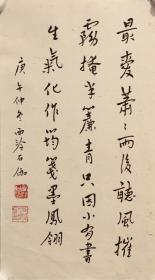 最爱萧々雨后听风摧
雾掩半帘青只因小有书
生气化作筠笺墨凤翎
庚午仲冬西泠石伽